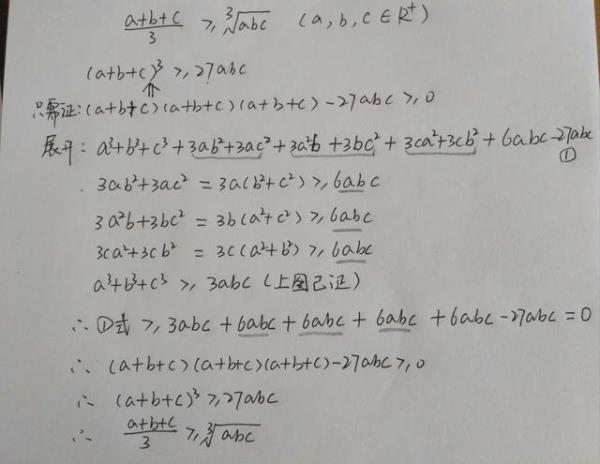 (a+b+c)/3 ≥ ∛abc (a,b,c∈R⁺)
(a+b+c)³ ≥ 27abc
⇑
只需证:(a+b+c)(a+b+c)(a+b+c)-27abc≥0
展开: a³+b³+c³+3ab²+3ac²+3a²b+3bc²+3ca²+3cb²+6abc-27abc
①
3ab²+3ac² = 3a(b²+c²)≥6abc
3a²b+3bc² = 3b(a²+c²)≥6abc
3ca²+3cb² = 3c(a²+b²)≥6abc
a³+b³+c³ ≥ 3abc (上图已证)
∴ ①式 ≥ 3abc+6abc+6abc+6abc+6abc-27abc=0
∴ (a+b+c)(a+b+c)(a+b+c)-27abc≥0
∴ (a+b+c)³≥27abc
∴ (a+b+c)/3 ≥ ∛abc